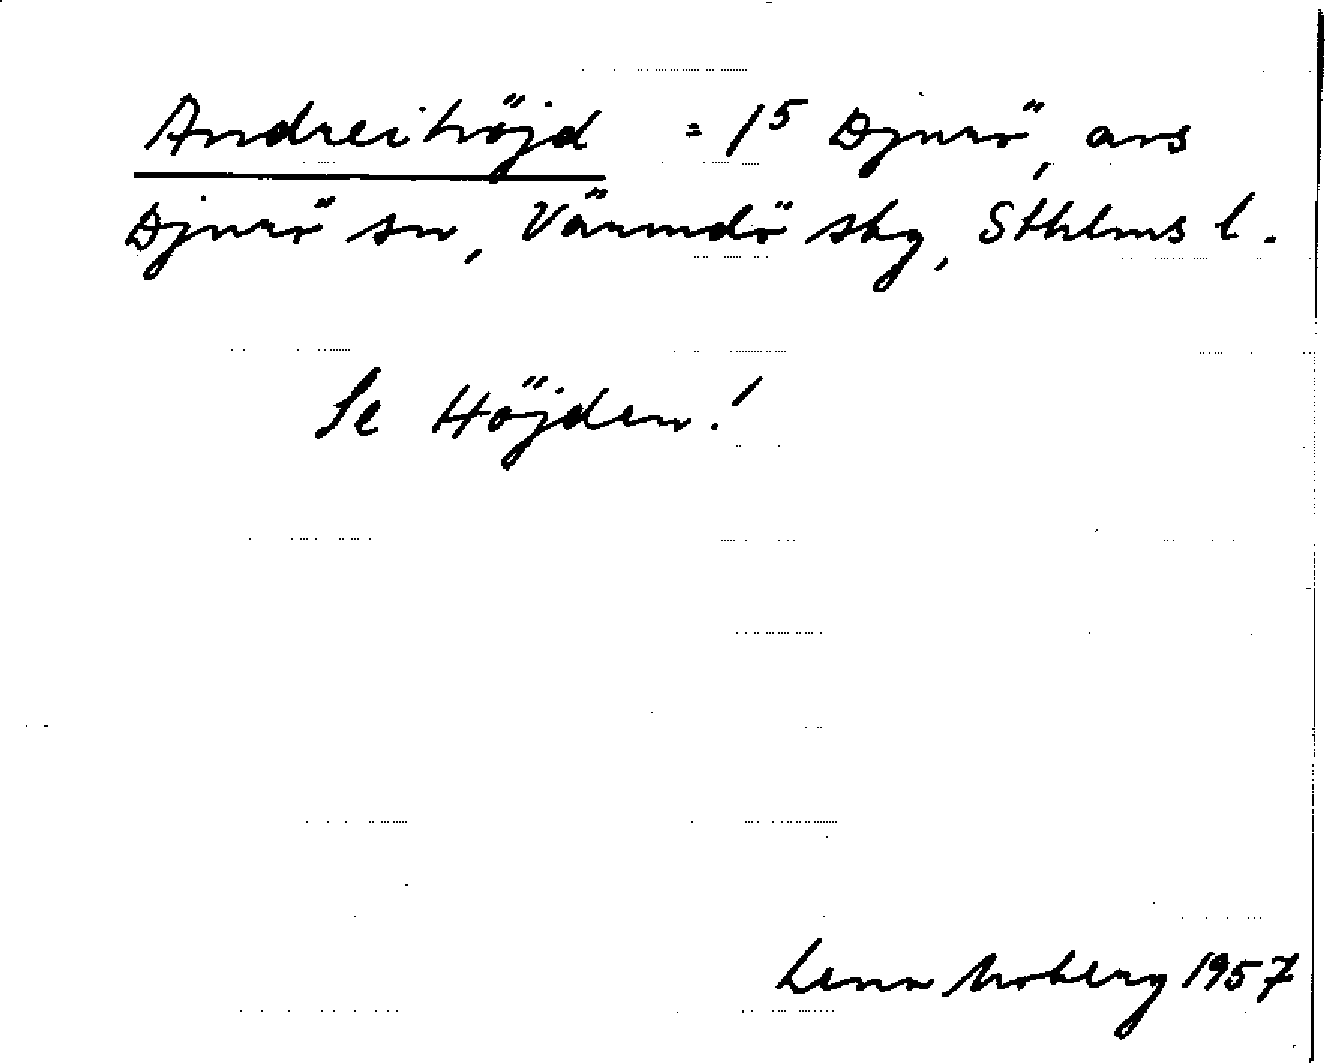 Andreihöjd = 1⁵ Djurö, avs
Djurö sn, Värmdö skg, Sthlms l.
Se Höjden!
Lena Moberg 1957